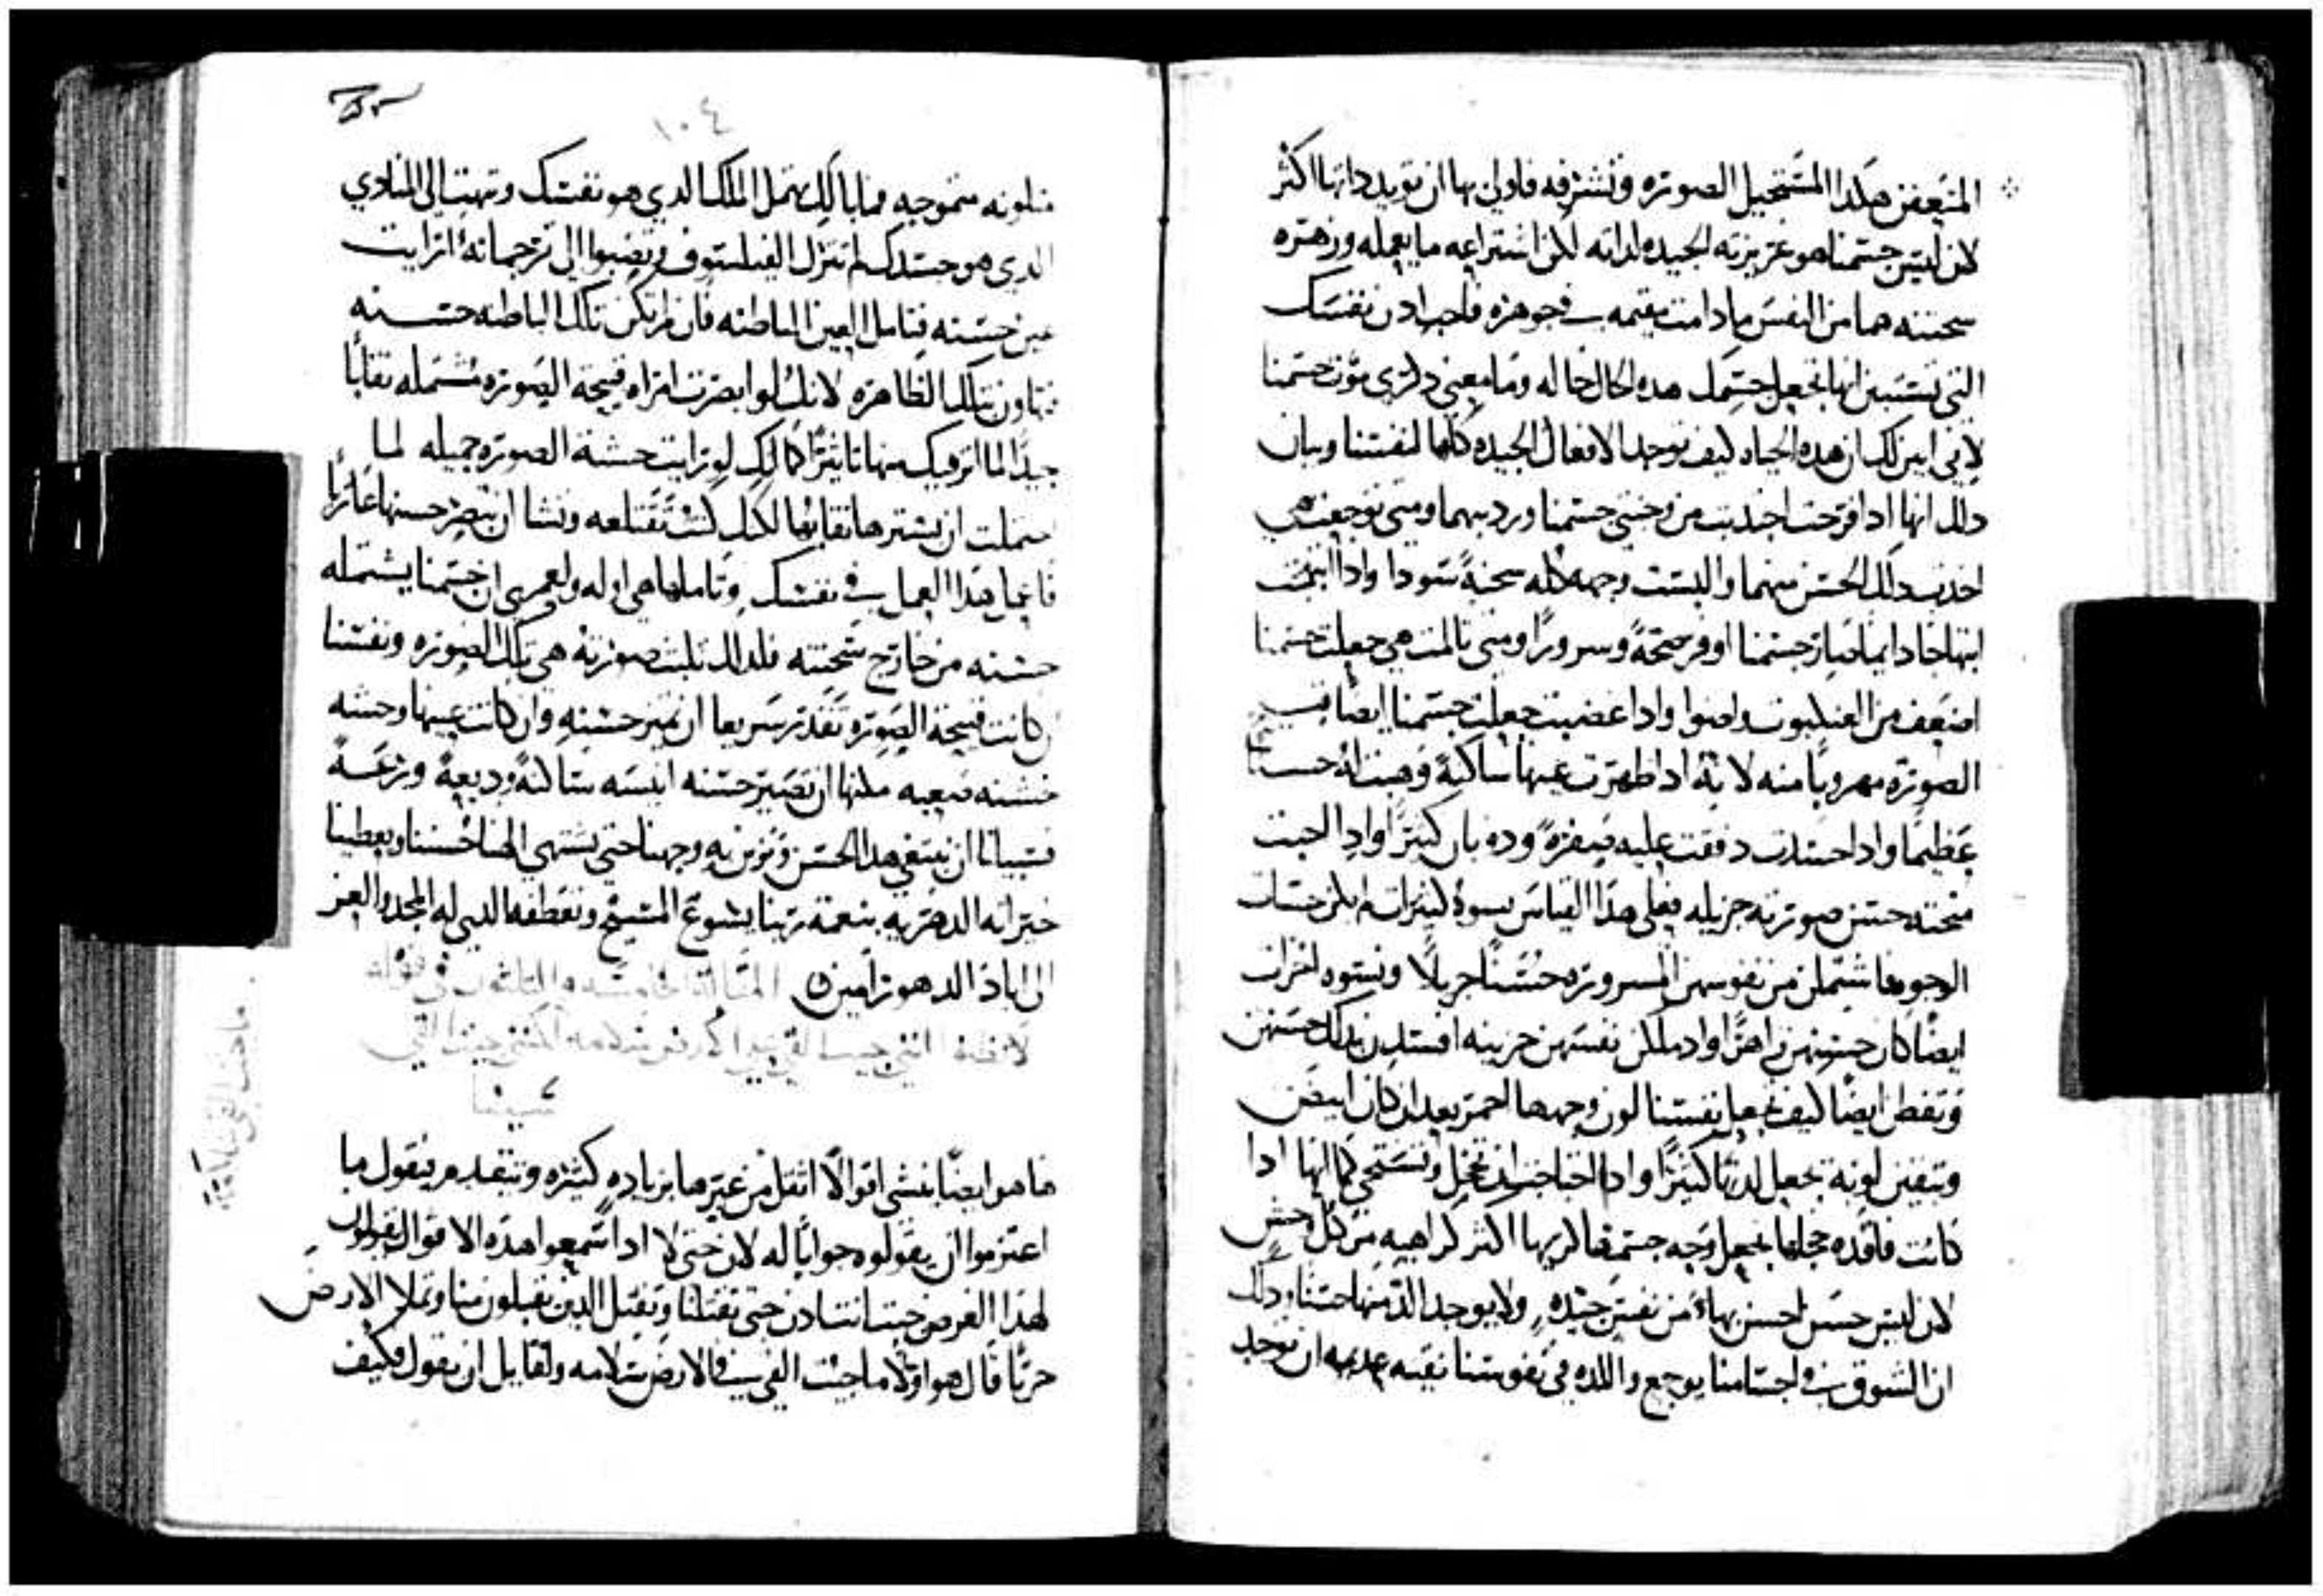 المتعفن هكدا المستحيل الصوره وتشرفه فاولي بها ان تويد داتها اكثر
لان ليس جسمنا هو غريزته الجيده لداته لكن اشتراعه ما يعمله وزهره
سحنته هما من النفس ما دامت مقيمه في جوهره فاحب ادن نفسك
التي تستبين انها تجعل جسمك هده الحال حاله وما معني دكري موت جسمنا
لانني ابين لك ان هده الحياه كيف توجد الافعال الجيده كلها لنفسنا وبيان
دلك انها ادا فرحت اجتدبت من وجنتي جسمنا وردتيهما ومتي توجعت هي
اخدت دلك الحسن منهما والبست وجهه كله سحنة سودا وادا ابتهجت
ابتهاجا دايما صار جسمنا اوفر صحة وسرورا ومتي تالمت هي جعلت جسمنا
اضعف من العنكبوت واضوا وادا غضبت جعلت جسمنا ايضا قبيح
الصوره مهروبا منه لانه ادا اظهرت عينها ساكنة وهبت له حسنا
عظيما وادا حسدت دفقت عليه صفرة ودوبان كثيرا وادا احبت
منحته حسن صورته جزيله فعلي هدا القياس نسوة كثيرات لم يكن حسنات
الوجوه فاشتملن من نفوسهن المسروره حسنا جزيلا ونسوه اخرات
ايضا كان حسنهن زاهرا واد تملكن نفسهن حزينه افسدن بدلك حسنهن
وتفطن ايضا كيف تجعل نفسنا لون وجهها احمر بعد ان كان ابيض
وتيقين لونه تجعل لدتها كثيرا وادا احتاجت ان تخجل وتستحي كما انها ادا
كانت فاقده خجلها تجعل وجه جسمها كريها اكثر كراهيه من كل وحش
لان ليس حسن احسن بهاء من نفس جيده ولا يوجد الد منها حسنا ودلك
ان الشوق في اجسامنا يوجع واللده في نفوسنا نقيه عديمه ان توجد
١٠٤
متلونه متموجه فما بالك تهمل الملك الدي هو نفسك وتبهت الي المنادي
الدي هو جسدك لم تترك الفيلسوف وتصبوا الي ترجمانه ان رايت
عين حسنه فتامل العين الباطنه فان لم تكن تلك الباطنه حسنه
تهاون بتلك الظاهره لانك لو ابصرت امراه قبيحة الصوره مشتمله نقابا
جيدا لما اثر فيك منها تاثيرا كدلك لو رايت حسنة الصوره جميله لما
احتملت ان يسترها نقابها لكنك كنت تقتلعه وتشا ان تبصر حسنها عاريا
فاعمل هدا العمل في نفسك وتاملها هي اوله ولعمري ان جسمنا يشتمله
حسنه من خارج سحنته فلدلك تلبث صورته هي تلك الصوره ونفسنا
ان كانت قبيحة الصوره تقدر سريعا ان تصير حسنه وان كانت عينها وحشه
خشنه صعبه يمكنها ان تصير حسنه انيسه ساكنة وديعة وزعة
فسبيلنا ان نبتغي هدا الحسن ونزين به وجهنا حتي يشتهي الهنا حسننا ويعطينا
خيراته الدهريه بنعمة ربنا يسوع المسيح وتعطفه الدي له المجد والعز
الي اباد الدهور امين المقاله الخامسه والثلثون في قوله
لا تظنوا انني جيت القي علي الارض سلامه لكنني جيت القي
سيفا
ها هو ايضا ينشي اقوالا اثقل من غيرها بزياده كثيره وتتقدم بتقول ما
اعتزموا ان يقولوه جوابا له لان حتي لا ادا سمعوا هده الاقوال يقولون
لهدا الغرض جيت انت ادن حتي تقتلنا وتقتل الدين يقبلون منا وتملا الارض
حربا قال هو اولا ما جيت القي في الارض سلامه ولقايل ان يقول فكيف